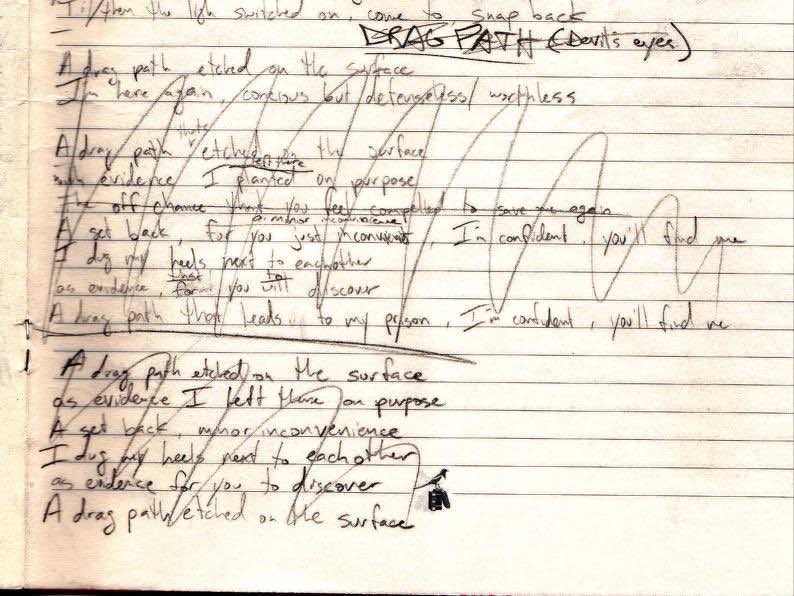 Till then the ligh switched on, come to, snap back
DRAG PATH (Devil's eyes)
A drag path etched on the surface
I'm here again, concious but defenseless/ worthless
thats
A drag path etched on the surface
left there
with evidence I planted on purpose
The off chance that you feel compelled to save me again
a minor inconvenience
A set back, for you just inconvenient, I'm confident, you'll find me
I dug my heels next to eachother
what to
as evidence, for you will discover
A drag path that leads to my prison, I'm confident, you'll find me
A drag path etched on the surface
as evidence I left there on purpose
A set back, minor inconvenience
I dug my heels next to eachother
as evidence for you to discover
A drag path etched on the surface